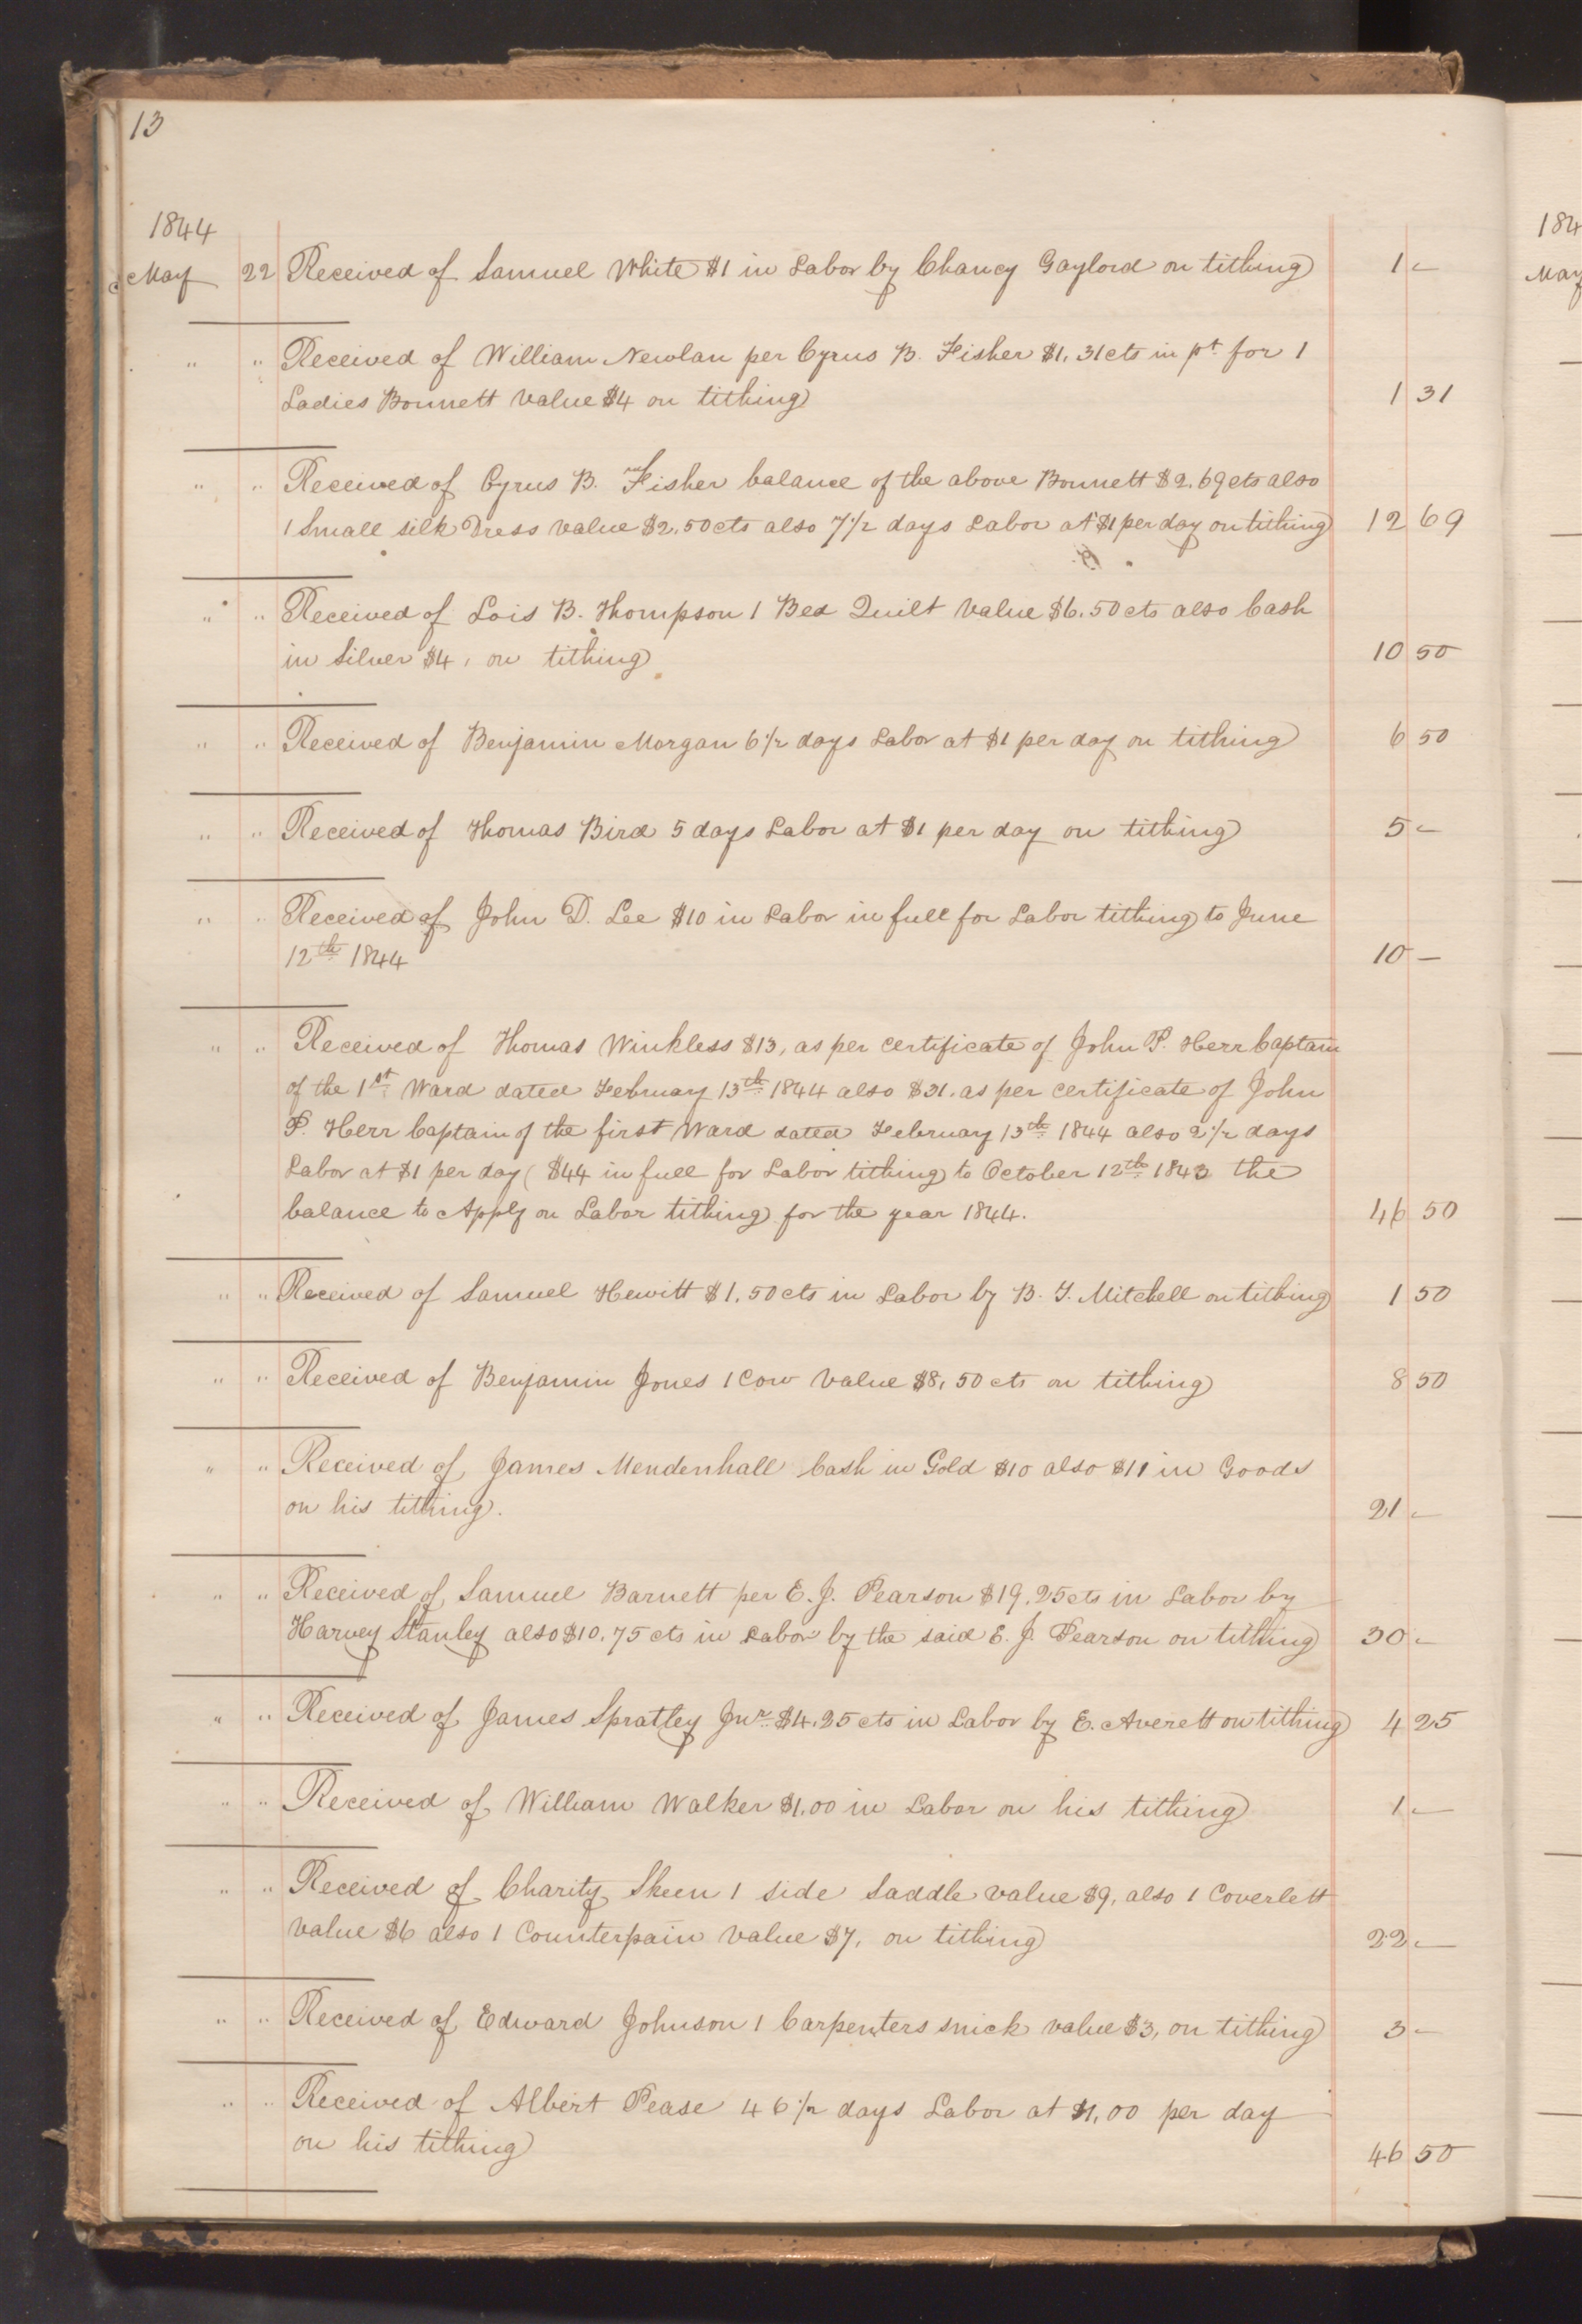 13
1844
May 22 Received of Samuel White $1 in Labor by Chancy Gaylord on tithing 1 –
" " Received of William Newlan per Cyrus B. Fisher $1,31cts in pt. for 1
Ladies Bonnett value $4 on tithing 1 31
" " Received of Cyrus B. Fisher balance of the above Bonnett $2.69cts also
1 Small silk Dress value $2.50cts also 7 1/2 days Labor at $1 per day on tithing 12 69
" " Received of Lois B. Thompson 1 Bed Quilt value $6.50cts also Cash
in Silver $4, on tithing 10 50
" " Received of Benjamin Morgan 6 1/2 days Labor at $1 per day on tithing 6 50
" " Received of Thomas Bird 5 days Labor at $1 per day on tithing 5 –
" " Received of John D. Lee $10 in Labor in full for Labor tithing to June
12th 1844 10 –
" " Received of Thomas Winkless $13, as per certificate of John P. Herr Captain
of the 1st Ward dated February 13th 1844 also $31. as per certificate of John
P. Herr Captain of the first Ward dated February 13th 1844 also 2 1/2 days
Labor at $1 per day ( $44 in full for Labor tithing to October 12th 1843 the
balance to Apply on Labor tithing for the year 1844. 46 50
" " Received of Samuel Hewitt $1.50cts in Labor by B. T. Mitchell on tithing 1 50
" " Received of Benjamin Jones 1 Cow value $8,50cts on tithing 8 50
" " Received of James Mendenhall Cash in Gold $10 also $11 in Goods
on his tithing. 21 –
" " Received of Samuel Barnett per E. J. Pearson $19.25cts in Labor by
Harvey Stanley also $10.75cts in Labor by the said E. J. Pearson on tithing 30 –
" " Received of James Spratley Jnr. $4.25cts in Labor by E. Averett on tithing 4 25
" " Received of William Walker $1,00 in Labor on his tithing 1 –
" " Received of Charity Skeen 1 side Saddle value $9, also 1 Coverlett
value $6 also 1 Counterpain value $7, on tithing 22 –
" " Received of Edward Johnson 1 Carpenters snick value $3, on tithing 3 –
" " Received of Albert Pease 46 1/2 days Labor at $1,00 per day
on his tithing 46 50
184
May